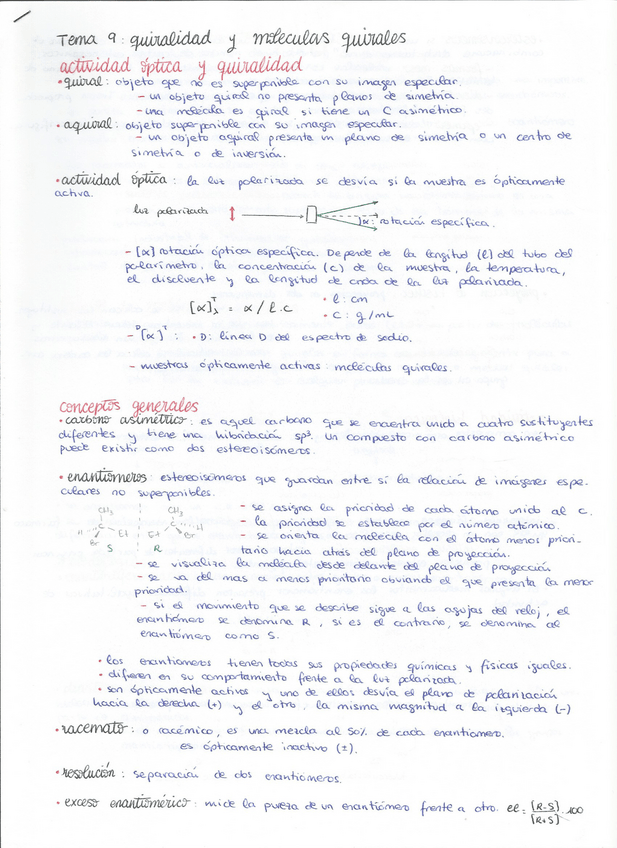 Tema 9: quiralidad y moleculas quirales
actividad óptica y quiralidad
• quiral: objeto que no es superponible con su imagen especular.
– un objeto quiral no presenta planos de simetría.
– una molécula es quiral si tiene un C asimétrico.
• aquiral: objeto superponible con su imagen especular.
– un objeto aquiral presenta un plano de simetría o un centro de
simetría o de inversión.
• actividad óptica: la luz polarizada se desvía si la muestra es ópticamente
activa.
luz polarizada
α: rotación específica.
– [α] rotación óptica específica. Depende de la longitud (l) del tubo del
polarímetro, la concentración (c) de la muestra, la temperatura,
el disolvente y la longitud de onda de la luz polarizada.
[α]ᵀλ = α / l.c
• l: cm
• c: g/mL
– ᴰ[α]ᵀ: • D: línea D del espectro de sodio.
– muestras ópticamente activas: moléculas quirales.
conceptos generales
• carbono asimétrico: es aquel carbono que se encuentra unido a cuatro sustituyentes
diferentes y tiene una hibridación sp³. un compuesto con carbono asimétrico
puede existir como dos estereoisómeros.
• enantiómeros: estereoisómeros que guardan entre sí la relación de imágenes espe-
culares no superponibles.
CH₃ CH₃
H C Et Et C H
Br Br
S R
– se asigna la prioridad de cada átomo unido al C.
– la prioridad se establece por el número atómico.
– se orienta la molécula con el átomo menos priori-
tario hacia atrás del plano de proyección.
– se visualiza la molécula desde delante del plano de proyección
– se va del mas a menos prioritario obviando el que presenta la menor
prioridad.
– si el movimiento que se describe sigue a las agujas del reloj, el
enantiómero se denomina R, si es el contrario, se denomina al
enantiómero como S.
• los enantiómeros tienen todas sus propiedades químicas y físicas iguales.
• difieren en su comportamiento frente a la luz polarizada.
• son ópticamente activos y uno de ellos desvía el plano de polarización
hacia la derecha (+) y el otro, la misma magnitud a la izquierda (–)
• racemato: o racémico, es una mezcla al 50% de cada enantiómero.
es ópticamente inactivo (±).
• resolución: separación de dos enantiómeros.
• exceso enantiomérico: mide la pureza de un enantiómero frente a otro. ee = [R-S] / [R+S] · 100